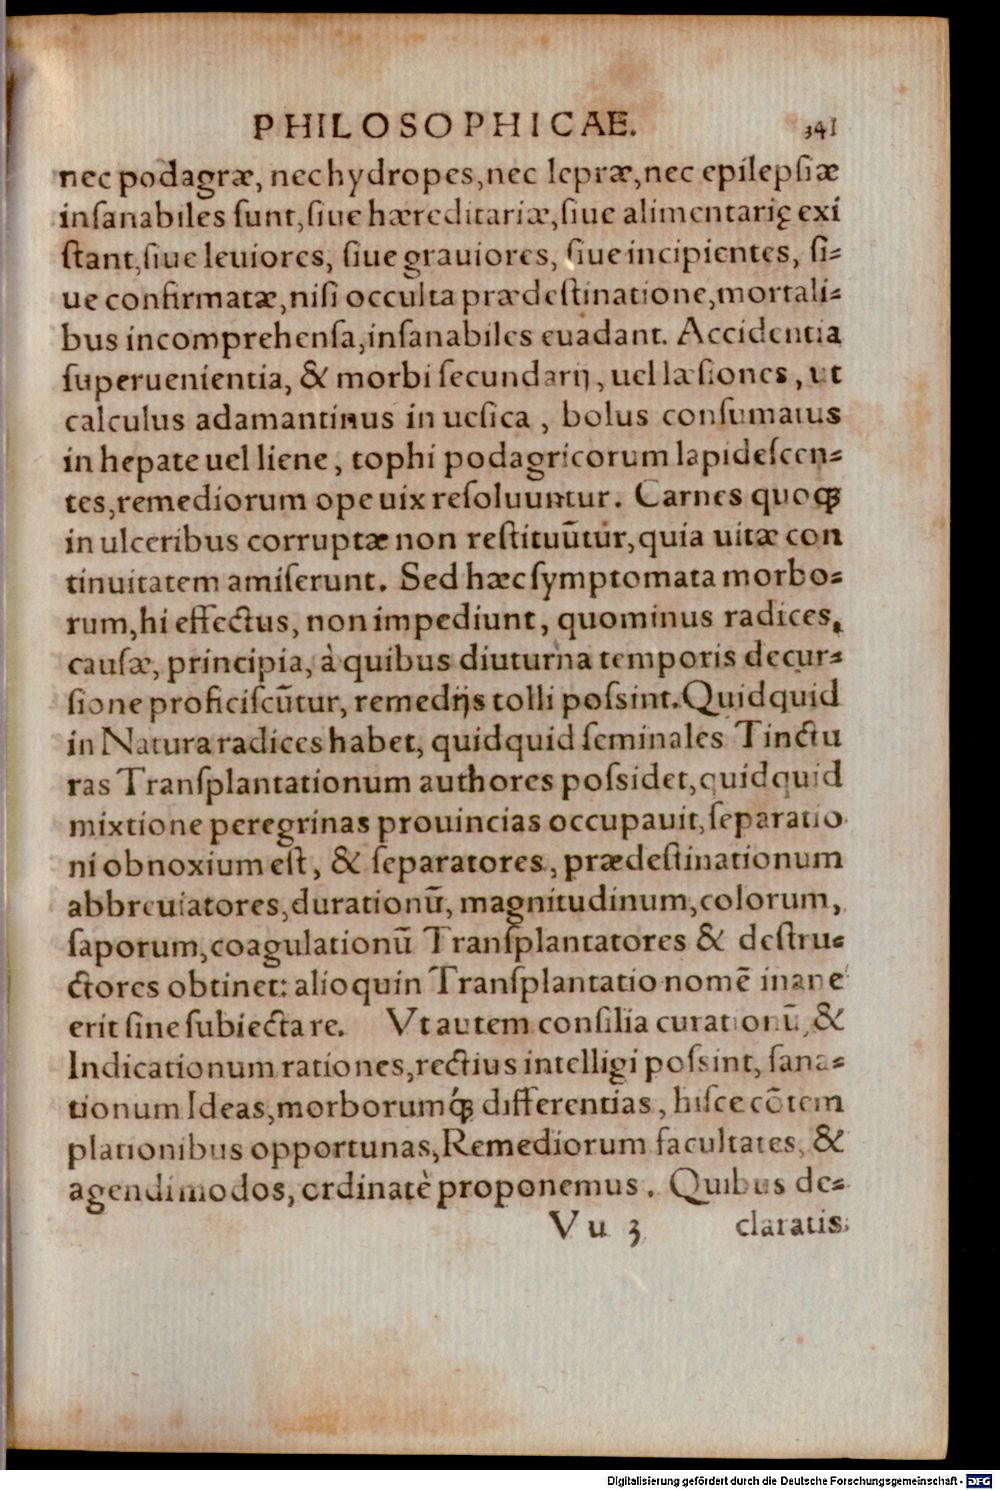 PHILOSOPHICAE. 341
nec podagræ, nec hydropes, nec lepræ, nec epilepsiæ
insanabiles sunt, siue hæreditariæ, siue alimentarię exi
stant, siue leuiores, siue grauiores, siue incipientes, si=
ue confirmatæ, nisi occulta prædestinatione, mortali=
bus incomprehensa, insanabiles euadant. Accidentia
superuenientia, & morbi secundarij, uel læsiones, ut
calculus adamantinus in uesica, bolus consumatus
in hepate uel liene, tophi podagricorum lapidescen=
tes, remediorum ope uix resoluuntur. Carnes quoq́
in ulceribus corruptæ non restituũtur, quia uitæ con
tinuitatem amiserunt. Sed hæc symptomata morbo=
rum, hi effectus, non impediunt, quominus radices,
causæ, principia, à quibus diuturna temporis decur=
sione proficiscũtur, remedijs tolli possint. Quidquid
in Natura radices habet, quidquid seminales Tinctu
ras Transplantationum authores possidet, quidquid
mixtione peregrinas prouincias occupauit, separatio
ni obnoxium est, & separatores, prædestinationum
abbreuiatores, durationũ, magnitudinum, colorum,
saporum, coagulationũ Transplantatores & destru=
ctores obtinet: alioquin Transplantatio nomẽ inane
erit sine subiecta re. Vt autem consilia curationũ, &
Indicationum rationes, rectius intelligi possint, sana=
tionum Ideas, morborumq́ differentias, hisce cõtem
plationibus opportunas, Remediorum facultates, &
agendi modos, ordinatè proponemus. Quibus de=
Vu 3 claratis
Digitalisierung gefördert durch die Deutsche Forschungsgemeinschaft - DFG